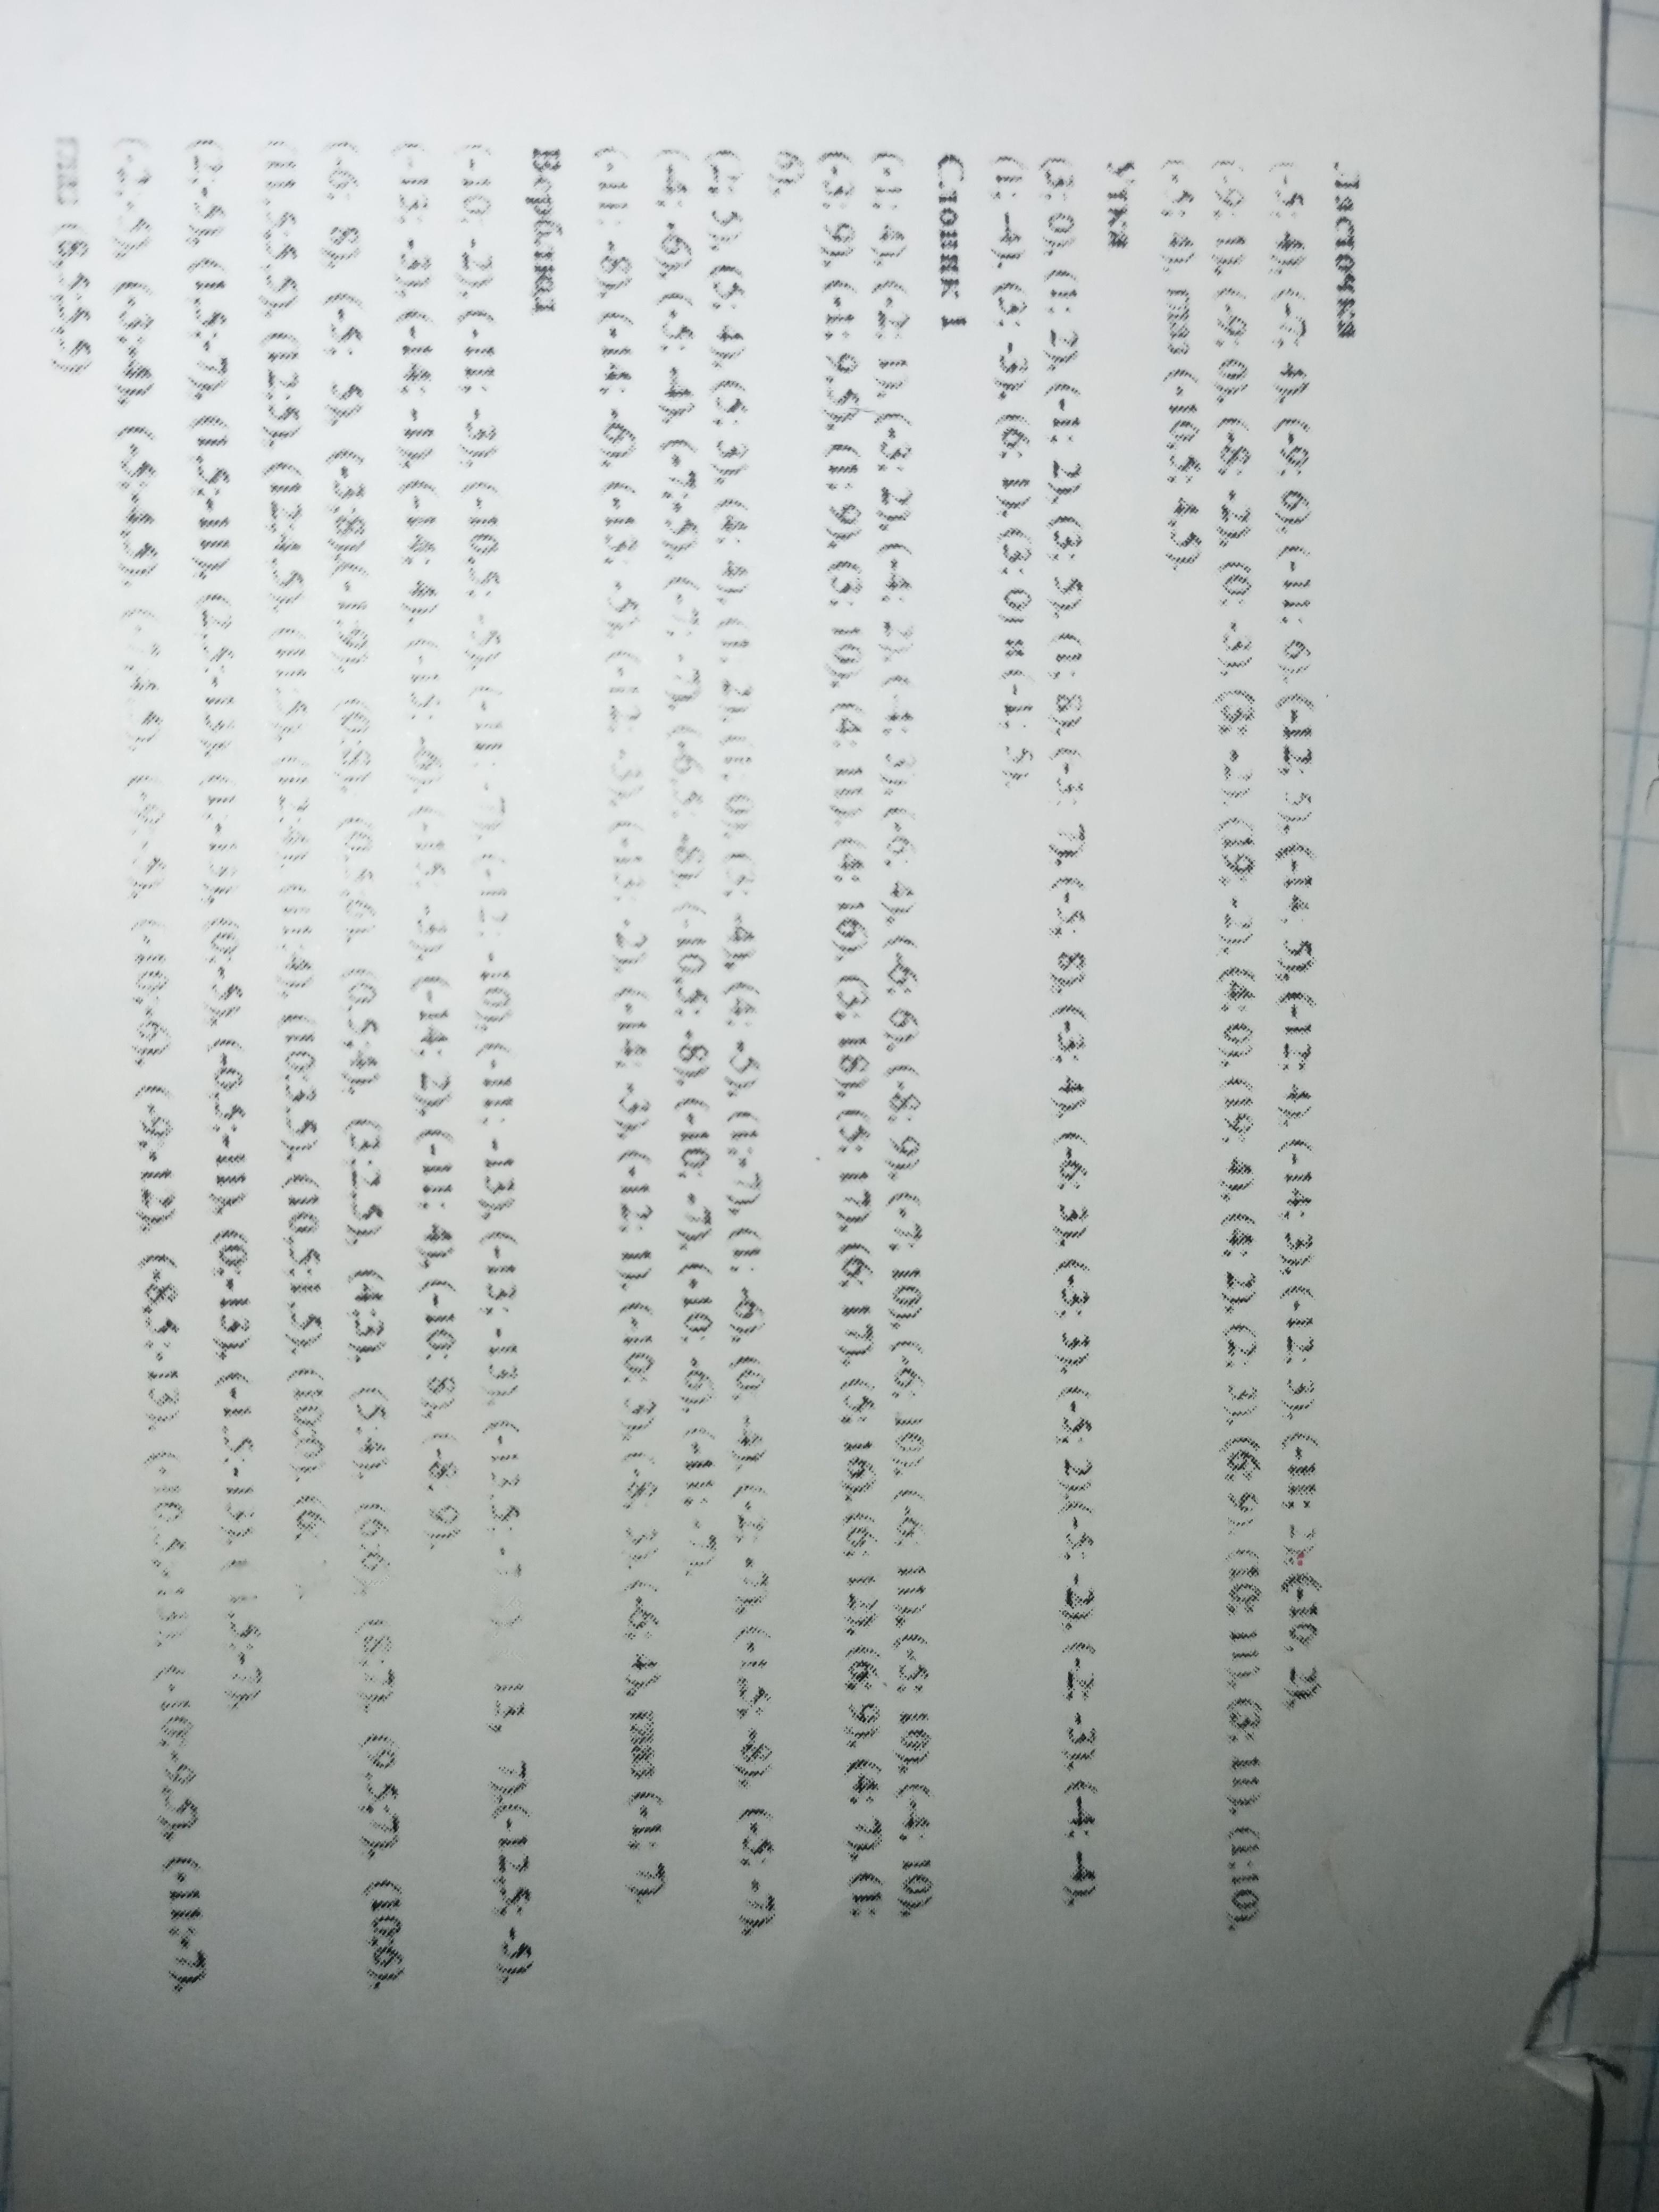 Ласточка
(-5; 4), (-7; 4), (-9; 6), (-11; 6), (-12; 5), (-14; 5), (-12; 4), (-14; 3), (-12; 3), (-11; 2), (-10; 2),
(-9; 1), (-9; 0), (-8; -2), (0; -3), (3; -2), (19; -2), (4; 0), (19; 4), (4; 2), (2; 3), (6; 9), (10; 11), (3; 11), (1; 10),
(-5; 4), глаз (-10,5; 4,5).
Утка
(3; 0), (1; 2), (-1; 2), (3; 5), (1; 8), (-3; 7), (-5; 8), (-3; 4), (-6; 3), (-3; 3), (-5; 2), (-5; -2), (-2; -3), (-4; -4),
(1; -4), (3; -3), (6; 1), (3; 0) и (-1; 5).
Слоник 1
(-1; 4), (-2; 1), (-3; 2), (-4; 2), (-4; 3), (-6; 4), (-6; 6), (-8; 9), (-7; 10), (-6; 10), (-6; 11), (-5; 10), (-4; 10),
(-3; 9), (-1; 9,5), (1; 9), (3; 10), (4; 11), (4; 16), (3; 18), (5; 17), (6; 17), (5; 16), (6; 12), (6; 9), (4; 7), (1;
6),
(5; 4), (5; 3), (4; 4), (1; 2), (1; 0), (3; -4), (4; -5), (1; -7), (1; -6), (0; -4), (-2; -7), (-1,5; -8), (-5; -7),
(-4; -6), (-5; -4), (-7; -5), (-7; -7), (-6,5; -8), (-10,5; -8), (-10; -7), (-10; -6), (-11; -7),
(-11; -8), (-14; -6), (-13; -5), (-12; -3), (-13; -2), (-14; -3), (-12; 1), (-10; 3), (-8; 3), (-6; 4), глаз (-1; 7).
Верблюд
(-10; -2), (-11; -3), (-10,5; -5), (-11; -7), (-12; -10), (-11; -13), (-13; -13), (-13,5; -7) (-12,5; -5),
(-13; -3), (-14; -1), (-14; 4), (-15; -6), (-15; -3), (-14; 2), (-11; 4), (-10; 8), (-8; 9),
(-6; 8), (-5; 5), (-3;8), (-1;9), (0;8), (0,5;6), (0,5;4), (3;2,5), (4;3), (5;4), (6;6), (8;7), (9,5;7), (10;6),
(11,5;5,5), (12;5), (12;4,5), (11;5), (12;4), (11;4), (10;3,5), (10,5;1,5), (10;0), (6;
(2;-5), (1,5;-7), (1,5;-11), (2,5;-13), (1;-13), (0;-5), (-0,5;-11), (0;-13), (-1,5;-13), (-1,5;-7),
(-2;-5), (-3;-4), (-5;-4,5), (-10;-6), (-9;-12), (-8,5;-13), (-10,5;-13), (-10;-9,5), (-11;-7),
глаз (8,5;5,5)